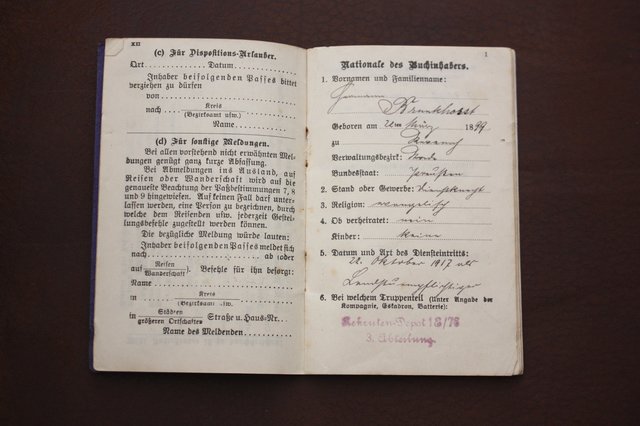 XII
(c) Für Dispositions-Urlauber.
Ort . . . . . . . . . Datum . . . . . . . . .
Inhaber beifolgenden Passes bittet
verziehen zu dürfen
von . . . . . . . . .
nach . . . . Kreis . . . .
(Bezirksamt usw.)
Name . . . . . . . . .
(d) Für sonstige Meldungen.
Bei allen vorstehend nicht erwähnten Mel-
dungen genügt ganz kurze Abfassung.
Bei Abmeldungen ins Ausland, auf
Reisen oder Wanderschaft wird auf die
genaueste Beachtung der Paßbestimmungen 7, 8
und 9 hingewiesen. Auf keinen Fall darf unter-
lassen werden, eine Person zu bezeichnen, durch
welche dem Reisenden usw. jederzeit Gestel-
lungsbefehle zugestellt werden können.
Die bezügliche Meldung würde lauten:
Inhaber beifolgenden Passes meldet sich
nach . . . . . . . . . ab oder
auf Reisen
Wanderschaft. Befehle für ihn besorgt:
Name . . . . . . . . .
in . . . . Kreis . . . .
(Bezirksamt usw.)
in Städten
größeren Ortschaften Straße u. Haus-Nr. . . .
Name des Meldenden . . . . . . . . .
1
Nationale des Buchinhabers.
1. Vornamen und Familienname:
Hermann
Brunkhorst
Geboren am 22ten März 1899
zu
Verwaltungsbezirk: Stade
Bundesstaat: Preußen
2. Stand oder Gewerbe: Dienstknecht
3. Religion: evangelisch
4. Ob verheiratet: nein
Kinder: keine
5. Datum und Art des Diensteintritts:
22. Oktober 1917 als
Landsturmpflichtiger
6. Bei welchem Truppenteil (Unter Angabe der
Kompagnie, Eskadron, Batterie):
Rekruten-Depot 18/78
3. Abteilung.